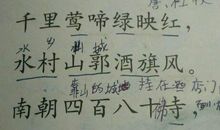 千里莺啼绿映红，
乡 城
水村山郭酒旗风。
靠山的城 挂在
南朝四百八十寺，